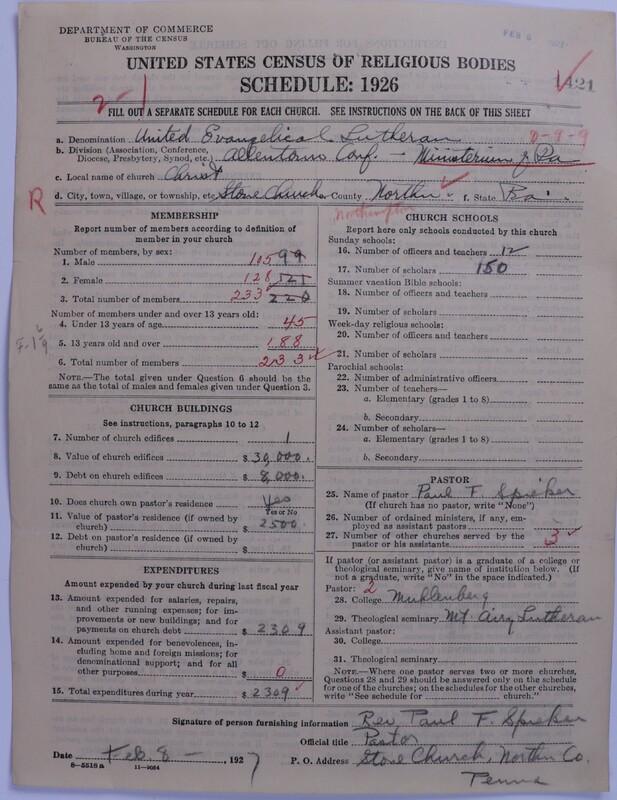 DEPARTMENT OF COMMERCE
BUREAU OF THE CENSUS
WASHINGTON
FEB 8
UNITED STATES CENSUS OF RELIGIOUS BODIES
SCHEDULE: 1926
1421
2-1
FILL OUT A SEPARATE SCHEDULE FOR EACH CHURCH. SEE INSTRUCTIONS ON THE BACK OF THIS SHEET
a. Denomination United Evangelical Lutheran
8-9-9
b. Division (Association, Conference, Diocese, Presbytery, Synod, etc.) Allentown Conf. — Ministerium of Pa
c. Local name of church Christ
d. City, town, village, or township, etc. Stone Church e. County Northn f. State Pa.
R
Northampton
MEMBERSHIP
Report number of members according to definition of
member in your church
Number of members, by sex:
1. Male 105 99
2. Female 128 121
3. Total number of members 233 220
Number of members under and over 13 years old:
4. Under 13 years of age 45
5. 13 years old and over 188
6. Total number of members 233
NOTE.—The total given under Question 6 should be
the same as the total of males and females given under Question 3.
CHURCH BUILDINGS
See instructions, paragraphs 10 to 12
7. Number of church edifices 1
8. Value of church edifices $ 30,000.
9. Debt on church edifices $ 8,000.
10. Does church own pastor's residence Yes
Yes or No
11. Value of pastor's residence (if owned by
church) $ 2500
12. Debt on pastor's residence (if owned by
church) $
EXPENDITURES
Amount expended by your church during last fiscal year
13. Amount expended for salaries, repairs,
and other running expenses; for im-
provements or new buildings; and for
payments on church debt $ 2309
14. Amount expended for benevolences, in-
cluding home and foreign missions; for
denominational support; and for all
other purposes $ 0
15. Total expenditures during year $ 2309
CHURCH SCHOOLS
Report here only schools conducted by this church
Sunday schools:
16. Number of officers and teachers 12
17. Number of scholars 150
Summer vacation Bible schools:
18. Number of officers and teachers
19. Number of scholars
Week-day religious schools:
20. Number of officers and teachers
21. Number of scholars
Parochial schools:
22. Number of administrative officers
23. Number of teachers—
a. Elementary (grades 1 to 8)
b. Secondary
24. Number of scholars—
a. Elementary (grades 1 to 8)
b. Secondary
PASTOR
25. Name of pastor Paul F. Spieker
(If church has no pastor, write "None")
26. Number of ordained ministers, if any, em-
ployed as assistant pastors
27. Number of other churches served by the
pastor or his assistants 3
If pastor (or assistant pastor) is a graduate of a college or
theological seminary, give name of institution below. (If
not a graduate, write "No" in the space indicated.)
Pastor: 2
28. College Muhlenberg
29. Theological seminary Mt Airy Lutheran
Assistant pastor:
30. College
31. Theological seminary
NOTE.—Where one pastor serves two or more churches,
Questions 28 and 29 should be answered only on the schedule
for one of the churches; on the schedules for the other churches,
write "See schedule for church."
Signature of person furnishing information Rev. Paul F. Spieker
Official title Pastor
Date Feb. 8 — , 1927
P. O. Address Stone Church, Northn Co.
Penna
8-5518a 11-9064